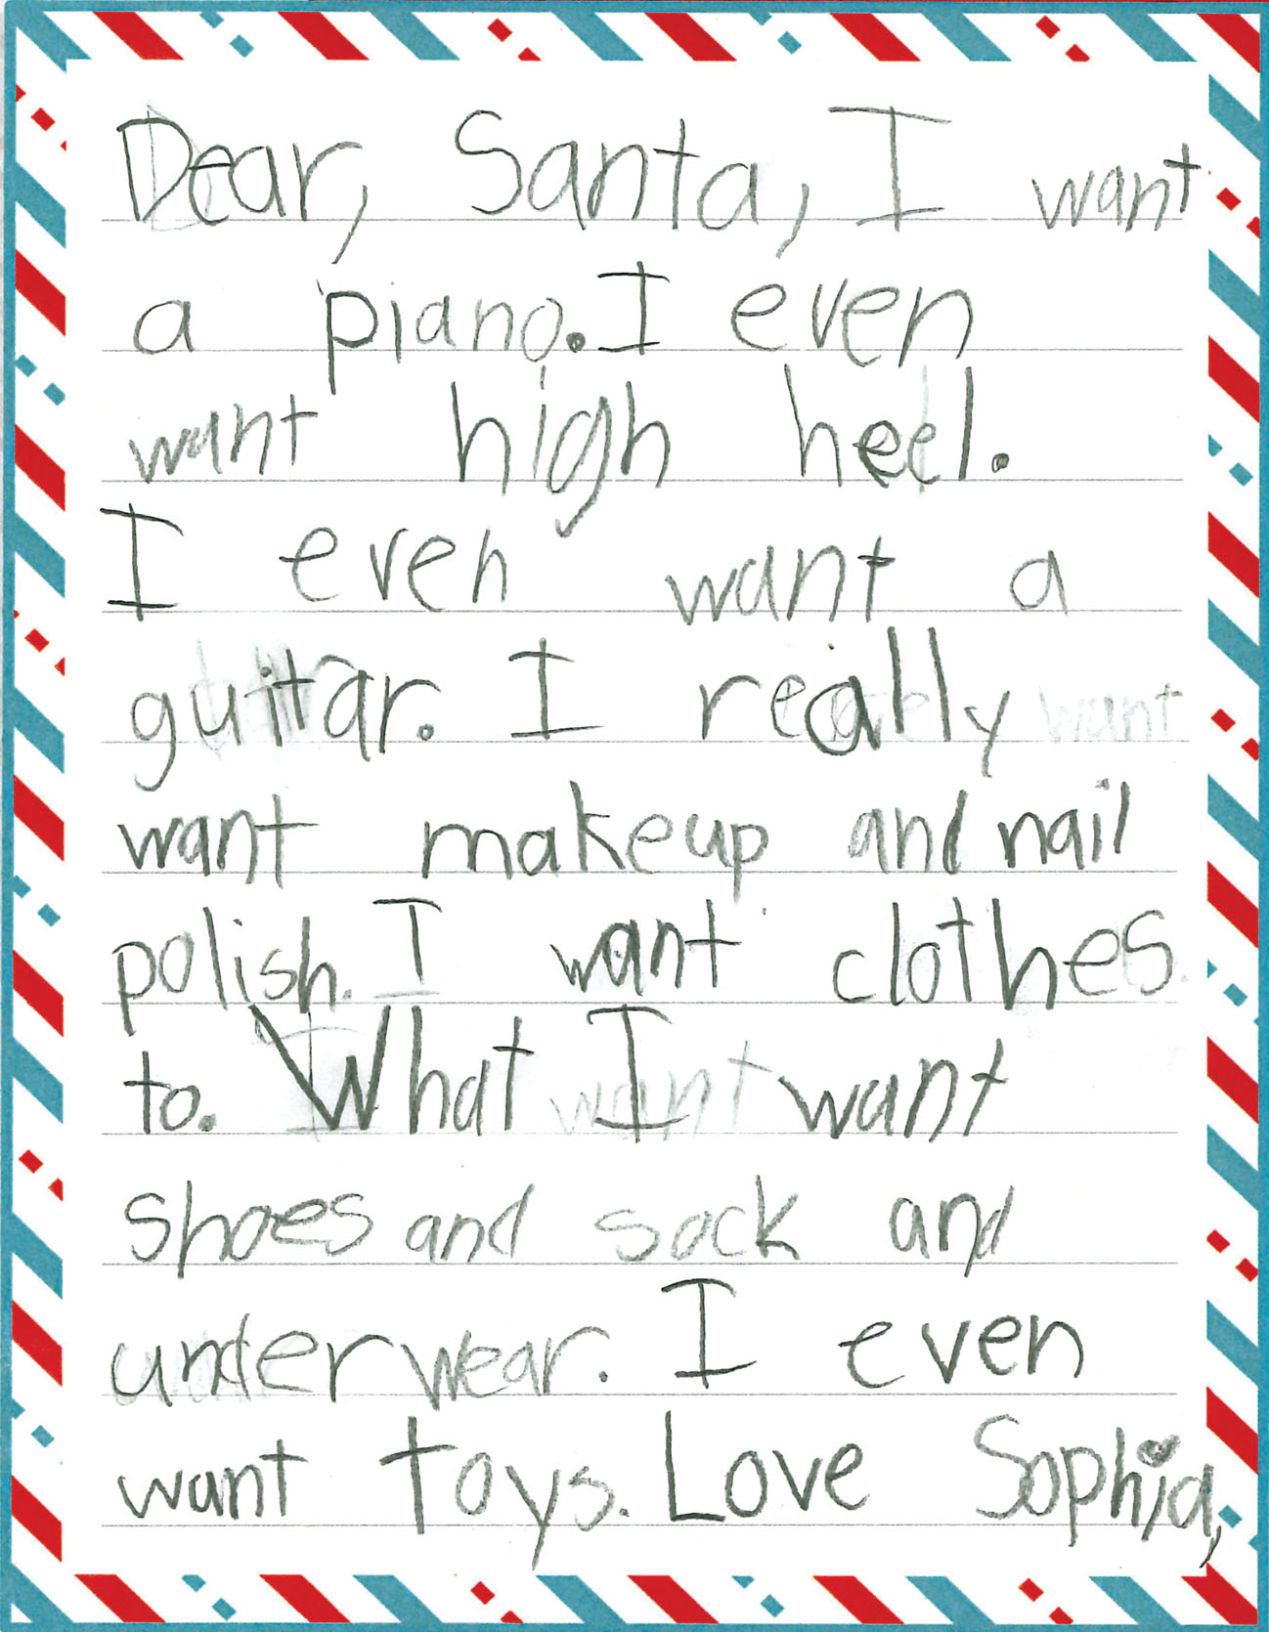 Dear, Santa, I want
a piano. I even
want high heel.
I even want a
guitar. I really
want makeup and nail
polish. I want clothes
to. What I want
shoes and sock and
underwear. I even
want toys. Love Sophia,